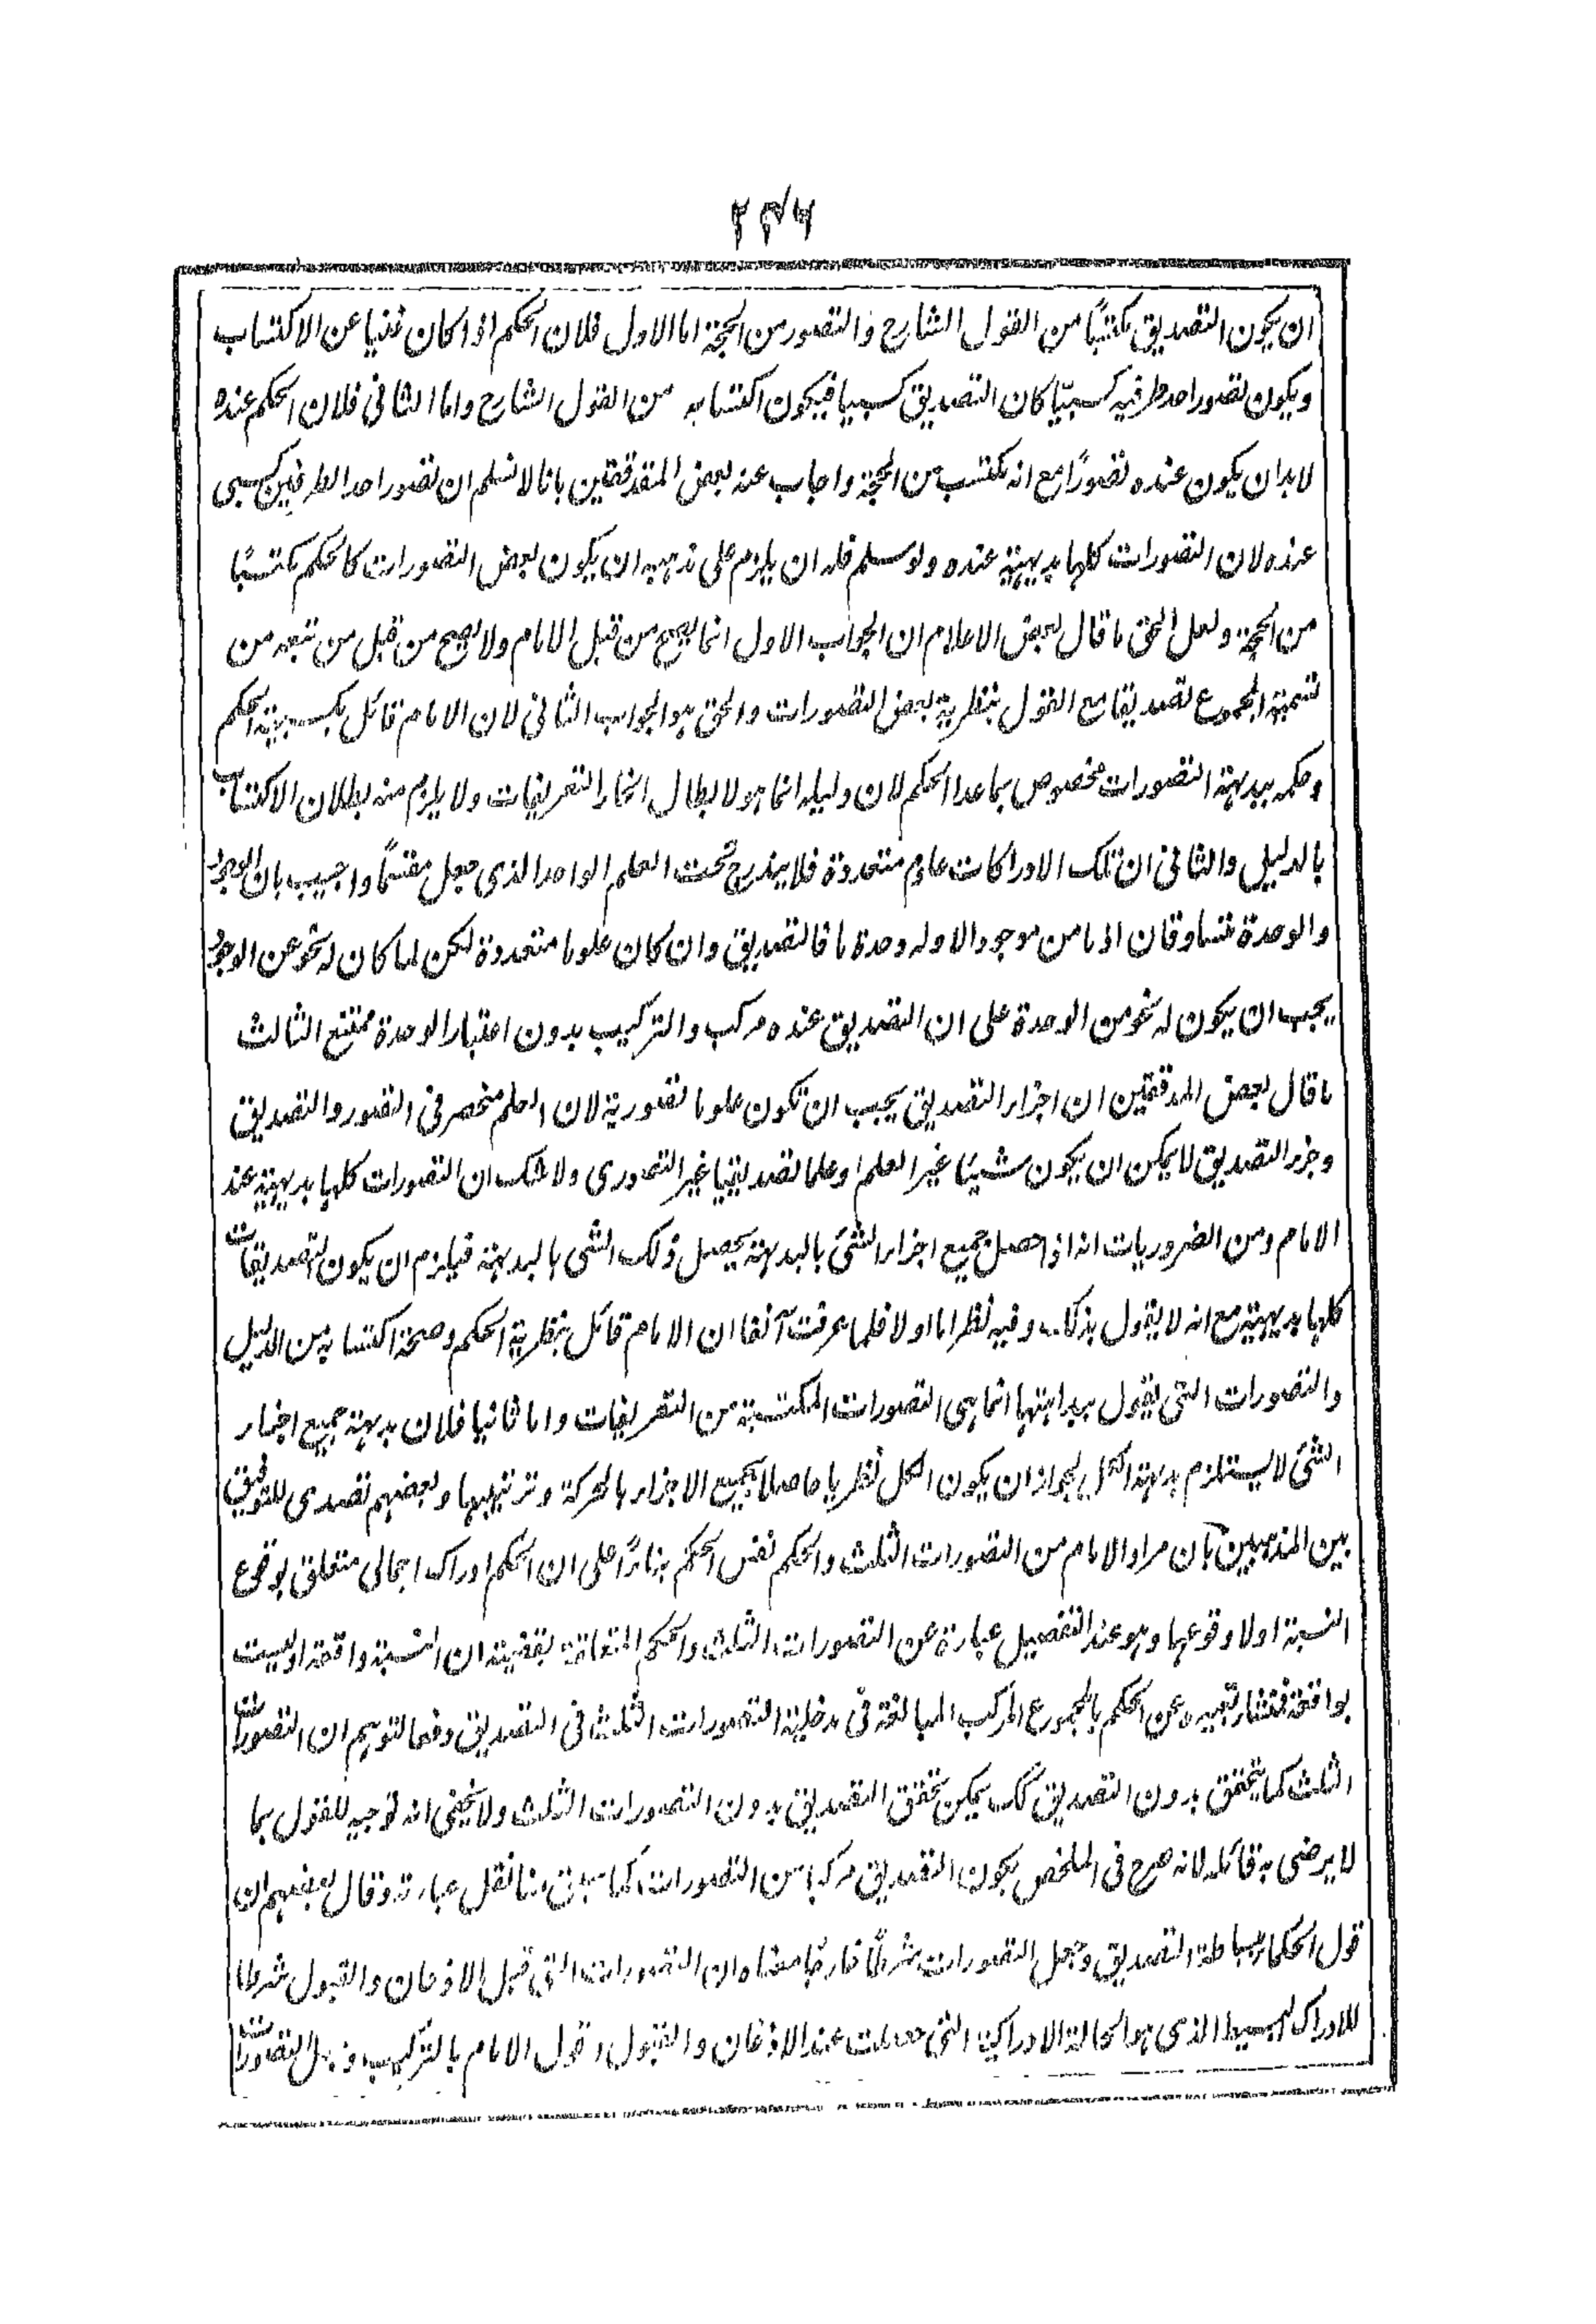 ۲۴۶
ان يكون التصديق مكتسبًا من القول الشارح والتصور من الحجة اما الاول فلان الحكم اذا كان غنيا عن الاكتساب
ويكون تصور احد طرفيه كسبيّا كان التصديق كسبيا فيكون اكتسابه من القول الشارح واما الثانى فلان الحكم عنده
لا بد ان يكون عنده تصورًا مع انه مكتسب من الحجة واجاب عنه بعض المتدققين بانا لا نسلم ان تصور احد الطرفين كسبى
عنده لان التصورات كلها بديهية عنده ولو سلم فله ان يلزم على مذهبه ان يكون بعض التصورات كالحكم مكتسبًا
من الحجة ولعل الحق ما قال بعض الاعلام ان الجواب الاول انما يصح من قبل الامام ولا يصح من قبل من تبعه من
تسمية المجموع تصديقا مع القول بنظرية بعض التصورات والحق هو الجواب الثانى لان الامام قائل بكسبية الحكم
وحكمه ببديهة التصورات مخصوص بما عدا الحكم لان دليله انما هو لابطال انحاء التعريفات ولا يلزم منه بطلان الاكتساب
بالدليل والثانى ان تلك الادراكات علوم متعددة فلا يندرج تحت العلم الواحد الذى جعل مقسمًا واجيب بان الوجود
والوحدة متساوقان اذ ما من موجود الا وله وحدة ما فالتصديق وان كان علوما متعددة لكن لما كان له نحو عن الوجود
يجب ان يكون له نحو من الوحدة على ان التصديق عنده مركب والتركيب بدون اعتبار الوحدة ممتنع الثالث
ما قال بعض المدققين ان اجزاء التصديق يجب ان تكون علوما تصورية لان العلم منحصر فى التصور والتصديق
وجزء التصديق لا يمكن ان يكون شيئا غير العلم او علما تصديقيا غير التصورى ولا شك ان التصورات كلها بديهية عند
الامام ومن الضروريات انه اذا حصل جميع اجزاء الشئ بالبديهة يحصل ذلك الشى بالبديهة فيلزم ان يكون التصديقات
كلها بديهية مع انه لا يقول بذلك وفيه نظر اما اولا فلما عرفت آنفا ان الامام قائل بنظرية الحكم وصحة اكتسابه من الدليل
والتصورات التى يقول ببداهتها انما هى التصورات المكتسبة من التعريفات واما ثانيا فلان بديهة جميع اجزاء
الشئ لا يستلزم بديهة الكل لجواز ان يكون الكل نظريا حاصلا بجميع الاجزاء بالحركة وترتيبها وبعضهم تصدى للتوفيق
بين المذهبين بان مراد الامام من التصورات الثلث والحكم نفس الحكم بناءً على ان الحكم ادراك اجمالى متعلق بوقوع
النسبة او لا وقوعها وهو عند التفصيل عبارة عن التصورات الثلث والحكم المتعلقة بقضية ان النسبة واقعة او ليست
بواقعة فمنشا تعبيره عن الحكم بالمجموع المركب المبالغة فى مدخلية التصورات الثلث فى التصديق دفعا لتوهم ان التصورات
الثلث كما يتحقق بدون التصديق كك يمكن تحقق التصديق بدون التصورات الثلث ولا يخفى انه توجيه للقول بما
لا يرضى به قائله لانه صرح فى الملخص بكون التصديق مركبا من التصورات كما سبق منا نقل عبارته وقال بعضهم ان
قول الحكماء ببساطة التصديق وجعل التصورات شرطًا خارجًا معناه ان التصورات التى قبل الاذعان والقبول شرط
للادراك البسيط الذى هو الحالة الادراكية التى حصلت عند الاذعان والقبول وقول الامام بالتركيب وجعل التصورات